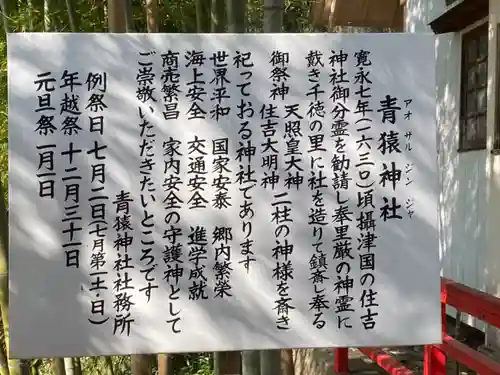 青猿神社
アオサルジンジャ
寛永七年(一六三〇)頃攝津国の住吉
神社御分霊を勧請し奉里厳の神霊に
戴き千徳の里に社を造りて鎮斎し奉る
御祭神 天照皇大神
住吉大明神 二柱の神様を斎き
祀っておる神社であります
世界平和 国家安泰 郷内繁栄
海上安全 交通安全 進学成就
商売繁昌 家内安全の守護神として
ご崇敬いただきたいところです
青猿神社社務所
例祭日 七月二日(七月第一土・日)
年越祭 十二月三十一日
元旦祭 一月一日